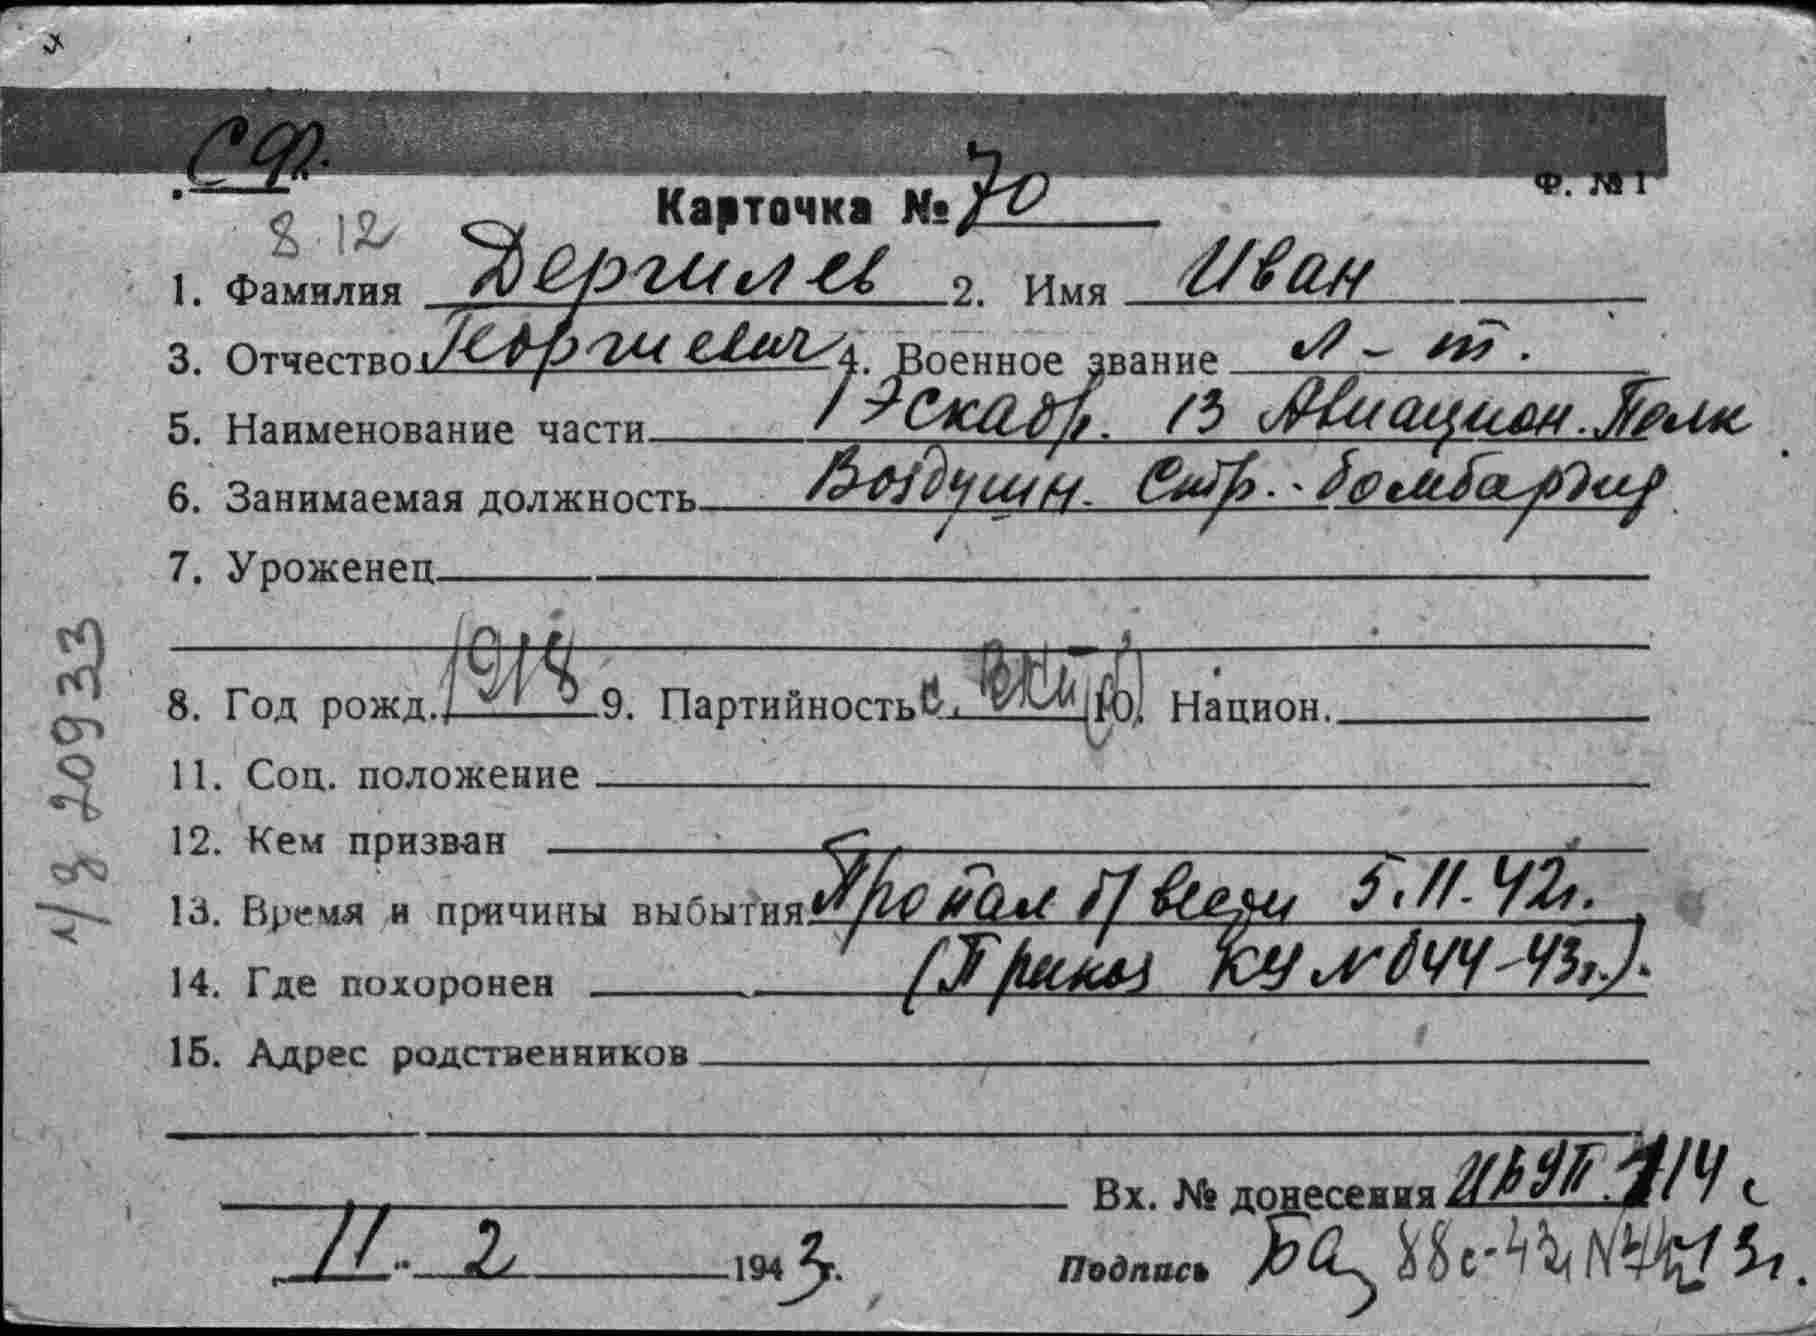 СФ.
Ф. № 1
Карточка № 70
8.12
1. Фамилия Дергилев 2. Имя Иван
3. Отчество Георгиевич 4. Военное звание л-т.
5. Наименование части 1 Эскадр. 13 Авиацион. Полк
6. Занимаемая должность Воздушн. Стр.-бомбардир
7. Уроженец
8. Год рожд. 1918 9. Партийность ВКП(б) 10. Национ.
11. Соц. положение
12. Кем призван
13. Время и причины выбытия Пропал б/вести 5.11.42г.
14. Где похоронен (Приказ КУ № 044-43г.).
15. Адрес родственников
Вх. № донесения 114 с
11. 2 1943г. Подпись 88с-43г
20933